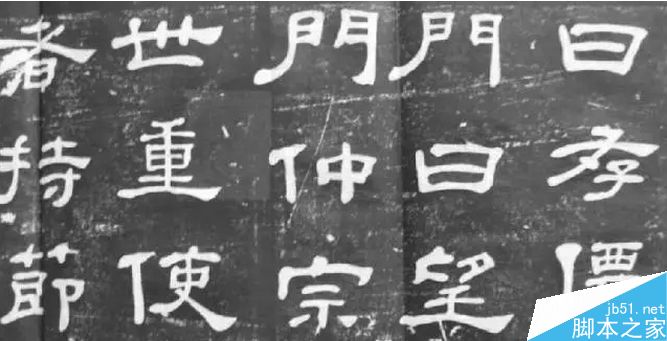 曰存僊
門曰望
門仲宗
世重使
者持節
jb51.net
脚本之家